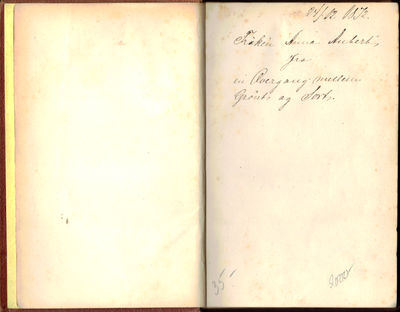 Frøken Anna Aubert,
fra
en Overgang mellem
Grønt og Sort.
35